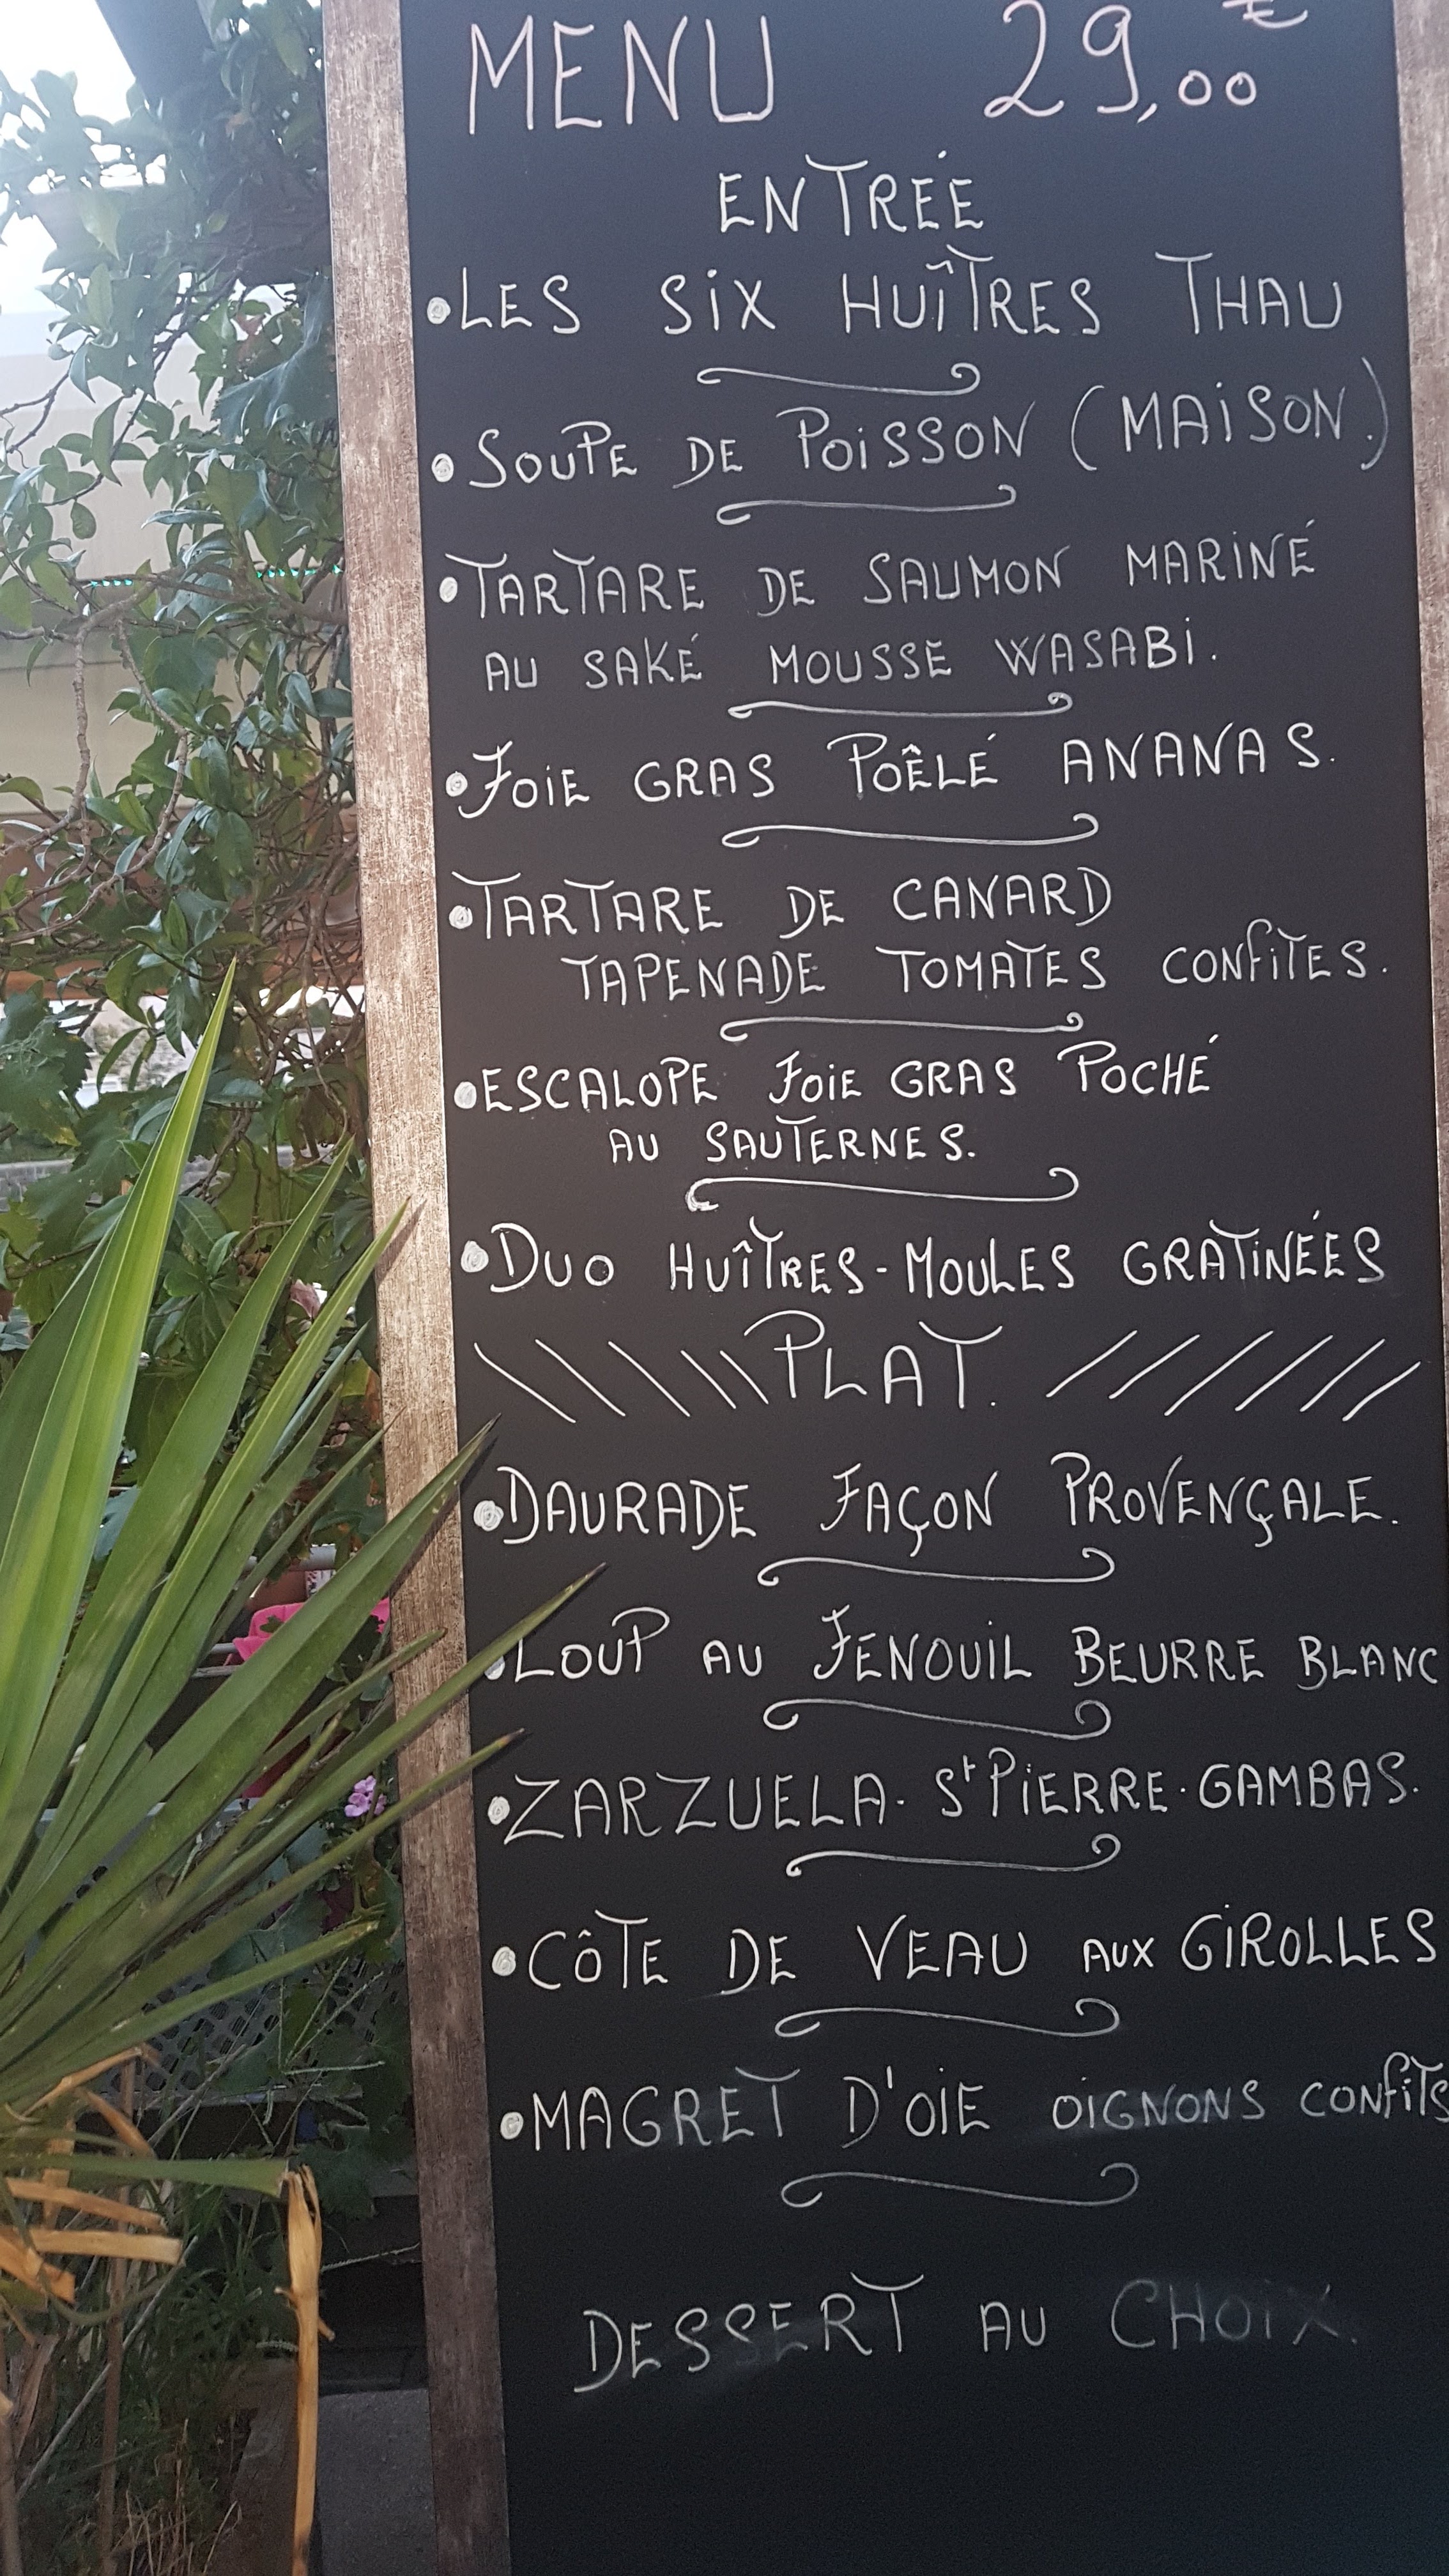 MENU 29,00 €
ENTRÉE
•LES SIX HUÎTRES THAU
•SOUPE DE POISSON (MAISON.)
•TARTARE DE SAUMON MARINÉ
AU SAKÉ MOUSSE WASABI.
•FOIE GRAS POÊLÉ ANANAS.
•TARTARE DE CANARD
TAPENADE TOMATES CONFITES.
•ESCALOPE FOIE GRAS POCHÉ
AU SAUTERNES.
•DUO HUÎTRES-MOULES GRATINÉES
PLAT.
•DAURADE FAÇON PROVENÇALE.
•LOUP AU FENOUIL BEURRE BLANC
•ZARZUELA. St PIERRE. GAMBAS.
•CÔTE DE VEAU AUX GIROLLES
•MAGRET D'OIE OIGNONS CONFITS
DESSERT AU CHOIX.